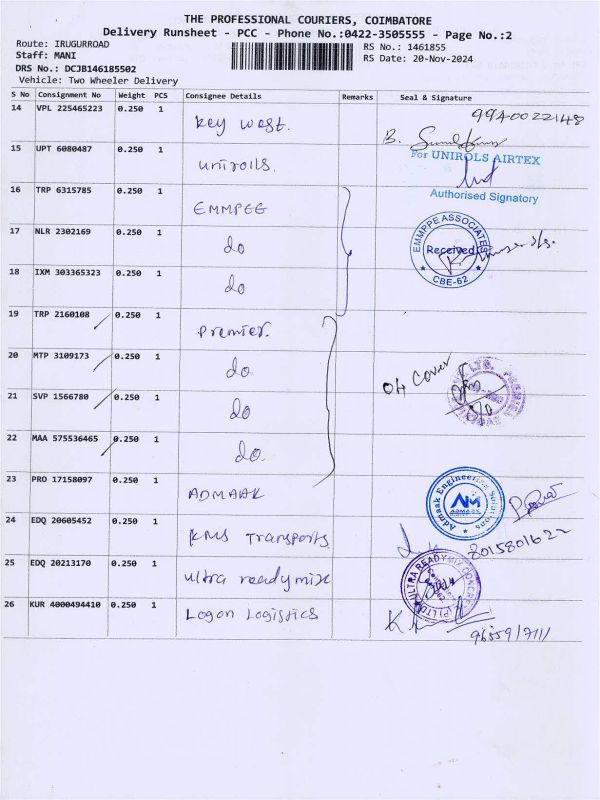 THE PROFESSIONAL COURIERS, COIMBATORE
Delivery Runsheet - PCC - Phone No.:0422-3505555 - Page No.:2
Route: IRUGURROAD
RS No.: 1461855
Staff: MANI
RS Date: 20-Nov-2024
DRS No.: DCJB146185502
Vehicle: Two Wheeler Delivery
S No Consignment No Weight PCS Consignee Details Remarks Seal & Signature
14 VPL 225465223 0.250 1 Key West. 9940022148
B.
15 UPT 6080487 0.250 1 Unirolls. For UNIROLS AIRTEX
Authorised Signatory
16 TRP 6315785 0.250 1 EMMPEE
EMMPPE ASSOCIATES
17 NLR 2302169 0.250 1 do Received
18 IXM 303365323 0.250 1 do
CBE-62
19 TRP 2160108 0.250 1 Premier.
20 MTP 3109173 0.250 1 do
04 Cover
21 SVP 1566780 0.250 1 do
22 MAA 575536465 0.250 1 do.
23 PRO 17158097 0.250 1 ADMAAK Admaak Engineering Solutions
24 EDQ 20605452 0.250 1 KMS Transports 8015801622
25 EDQ 20213170 0.250 1 Ultra readymix ULTRA READYMIX CONCRETE (P) LTD
26 KUR 4000494410 0.250 1 Logon Logistics K